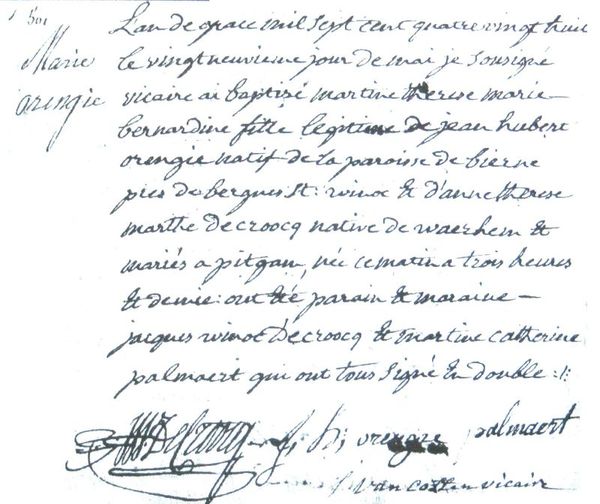 Marie
orengie
L'an de grace mil sept cent quatre vingt huit
le vingt neuvieme jour de mai je soussigné
vicaire ai baptizé martine therese marie
bernardine fille legitime de jean hubert
orengie natif de la paroisse de bierne
pres de bergues st: winoc & d'anne therese
marthe Decroocq native de waerhem &
mariés a pitgam, née ce matin a trois heures
& demie: ont été parain & maraine —
jacques winoc Decroocq & martine catherine
palmaert qui ont tous signé En double :/:
palmaert
vicair